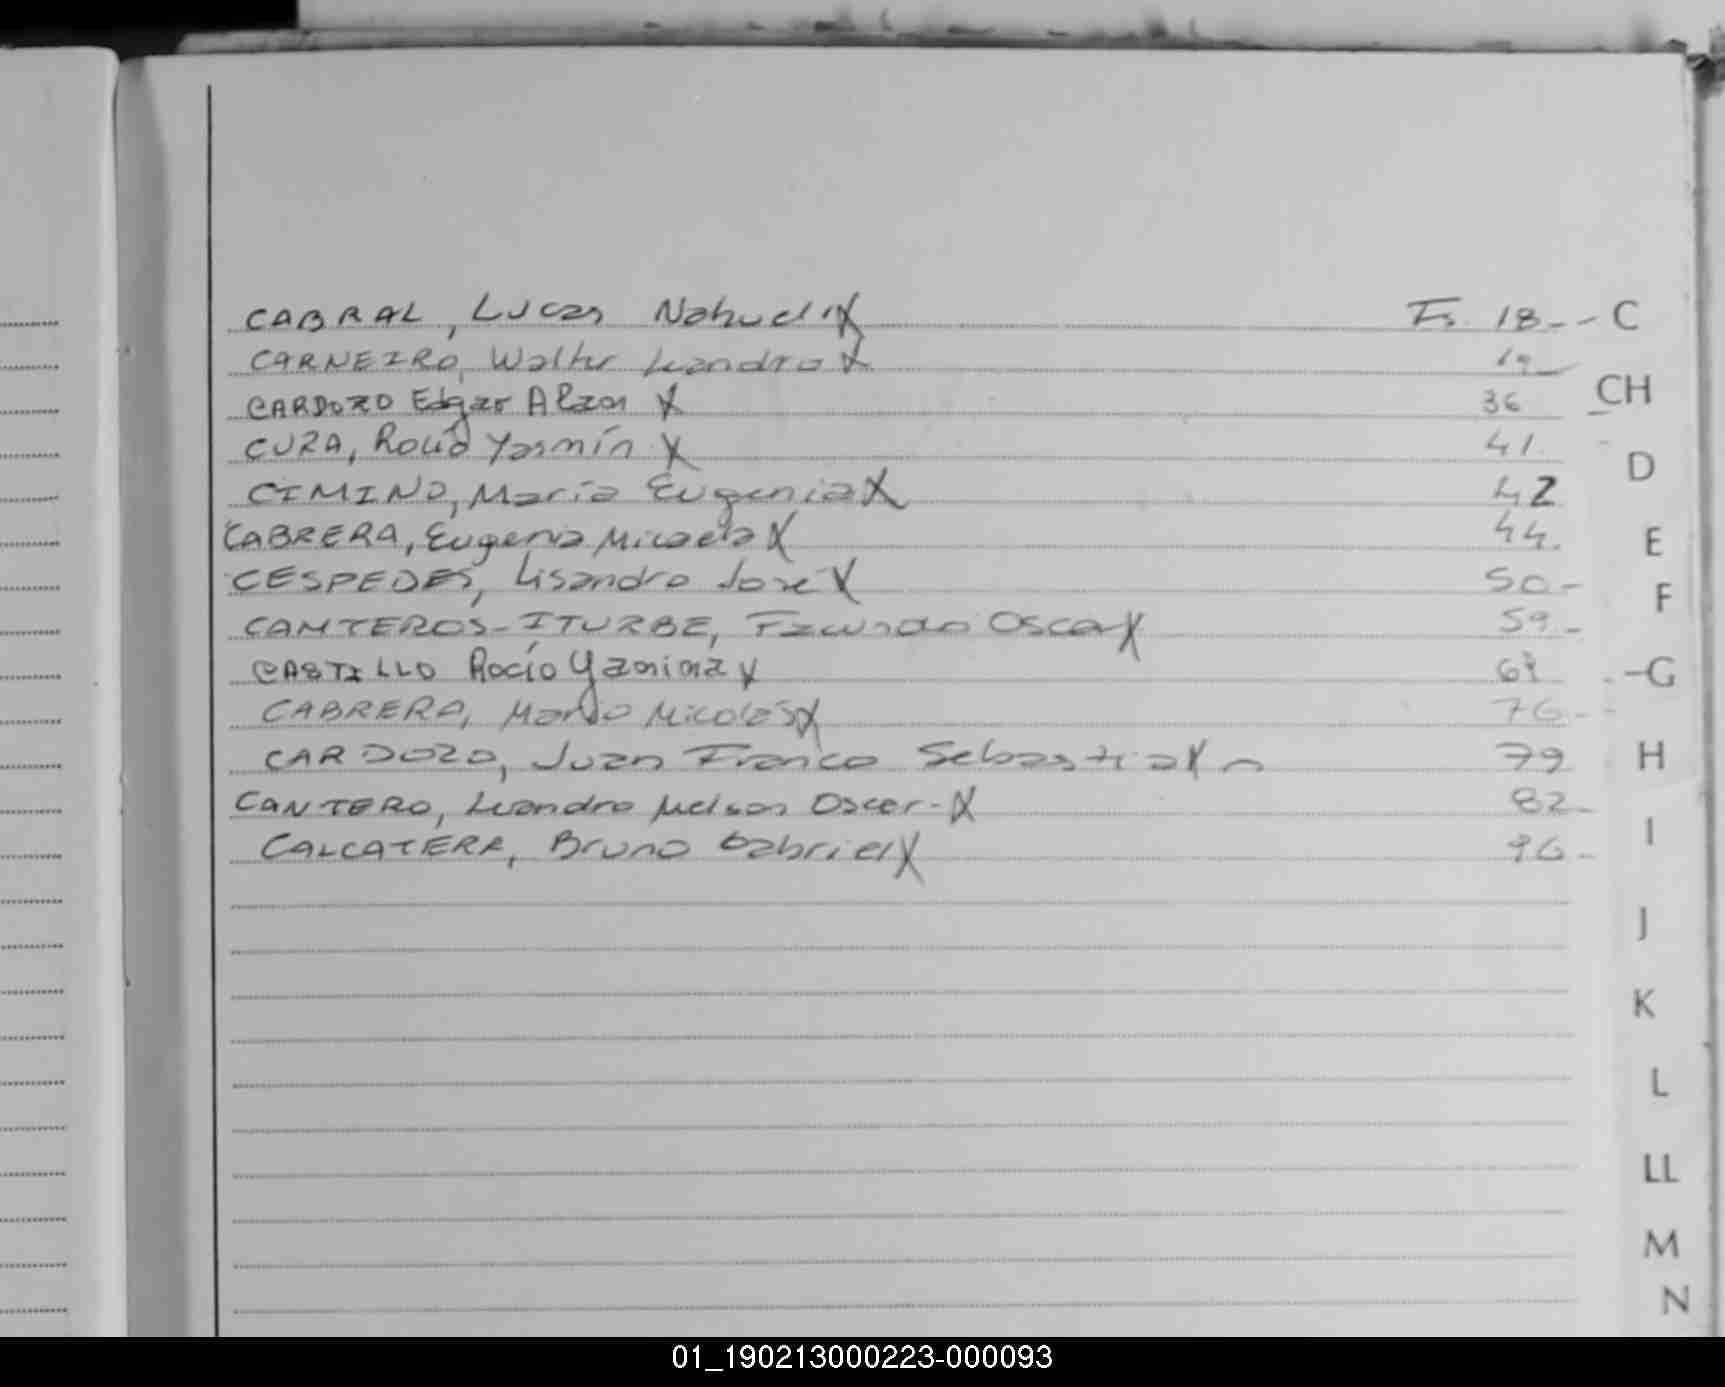 CABRAL, Lucas Nahuel X Fs. 18 - - C
CARNEIRO, Walter Leandro X 19
CARDOZO Edgar Alan X 36
CH
CUZA, Rocío Yasmín X 41
D
CIMINO, María Eugenia X 42
CABRERA, Eugenia Micaela X 44.
E
CESPEDES, Lisandro José X 50 -
F
CANTEROS-ITURBE, Facundo Oscar X 59 -
CASTILLO Rocío Yanina X
G
CABRERA, Mario Nicolás X 76 -
CARDOZO, Juan Franco Sebastian X 79
H
CANTERO, Leandro Nelson Oscar - X 82 -
CALCATERA, Bruno Gabriel X 96 -
I
J
K
L
LL
M
N
01_190213000223-000093